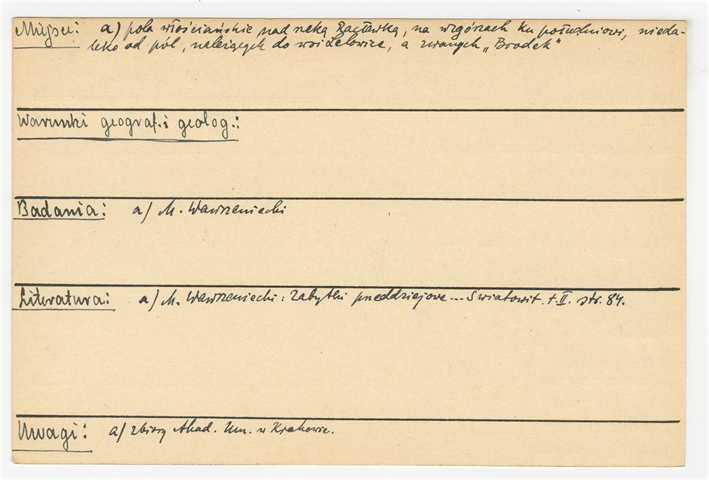 Miejsce: a) pola włościańskie nad rzeką Racławką, na wzgórzach ku południowi, nieda-
leko od pól, należących do wsi Lelowice, a zwanych „Brodek"
Warunki geograf. i geolog.:
Badania: a) M. Wawrzeniecki
Literatura: a) M. Wawrzeniecki: Zabytki przeddziejowe --- Światowit. t. II. str. 84.
Uwagi: a) zbiory Akad. Um. w Krakowie.